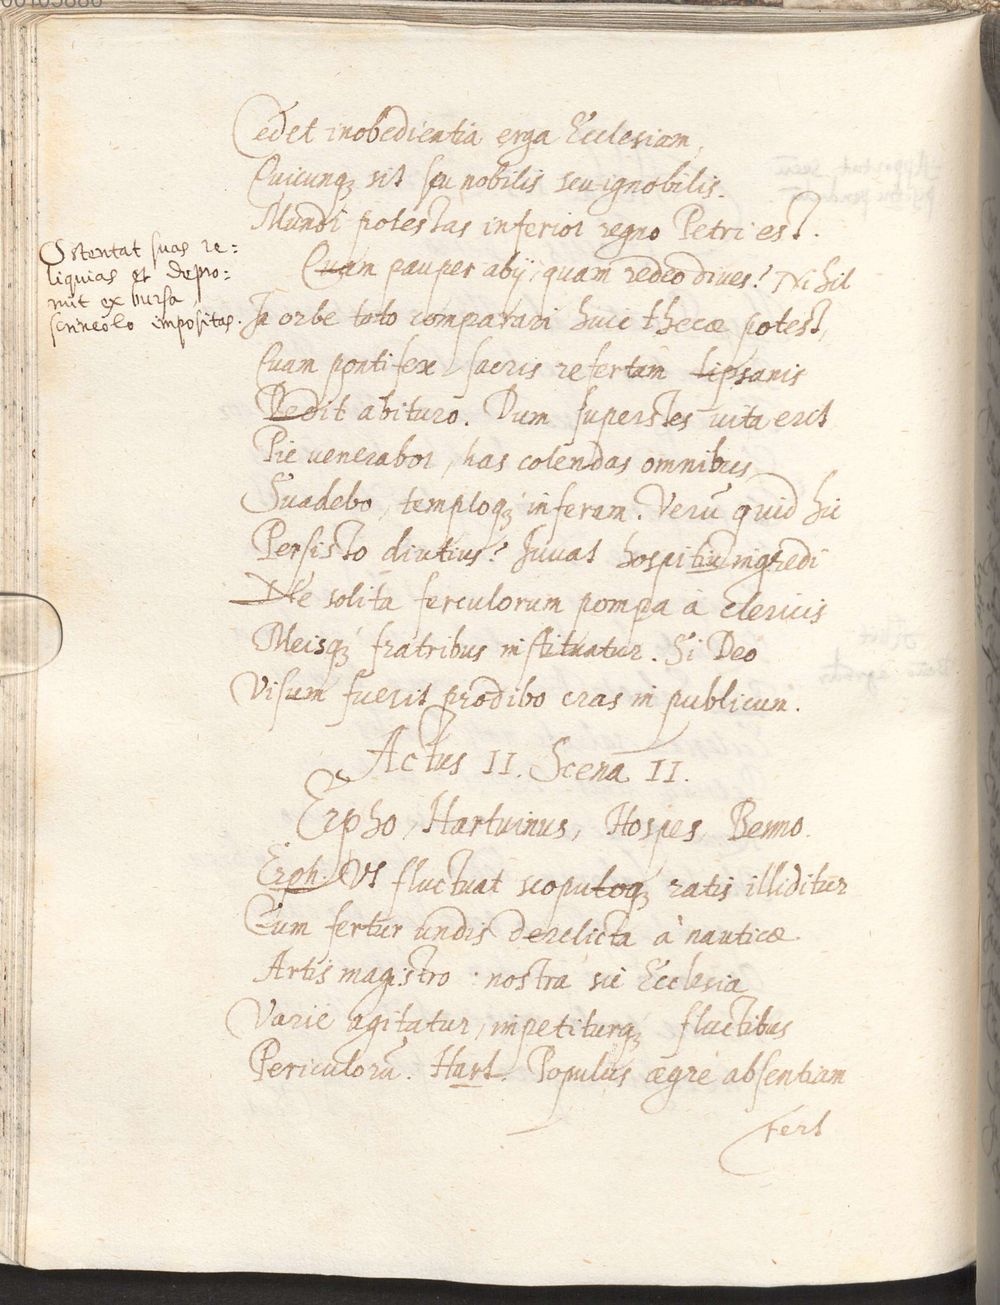 Cedet inobedientia erga Ecclesiam,
Cuicunqꝫ sit seu nobilis seu ignobilis.
Mundi potestas inferior regno Petri est.
Ostentat suas re:
liquias et depro:
mit ex bursa,
scrineolo impositas.
Quam pauper abij, quam redeo dives? Nihil
In orbe toto comparari huic thecæ potest,
Quam pontifex sacris refertam lipsanis
Dedit abituro. Dum superstes vita erit
Pie venerabor, has colendas omnibus
Suadebo, temploqꝫ inferam. Verū quid hic
Persisto diutius? Juvat hospitiū ingredi
Ne solita ferculorum pompa à clericis
Meisqꝫ fratribus instituatur. Si Deo
Visum fuerit prodibo cras in publicum.
Actus II. Scena II.
Erpho, Hartuinus, Hospes, Benno.
Erph. Vt fluctuat scopuloqꝫ ratis illiditur
Cum fertur undis derelicta à nauticæ
Artis magistro: nostra sic Ecclesia
Varie agitatur, inpetiturqꝫ fluctibus
Periculorū. Hart. Populus ægrè absentiam
Fert